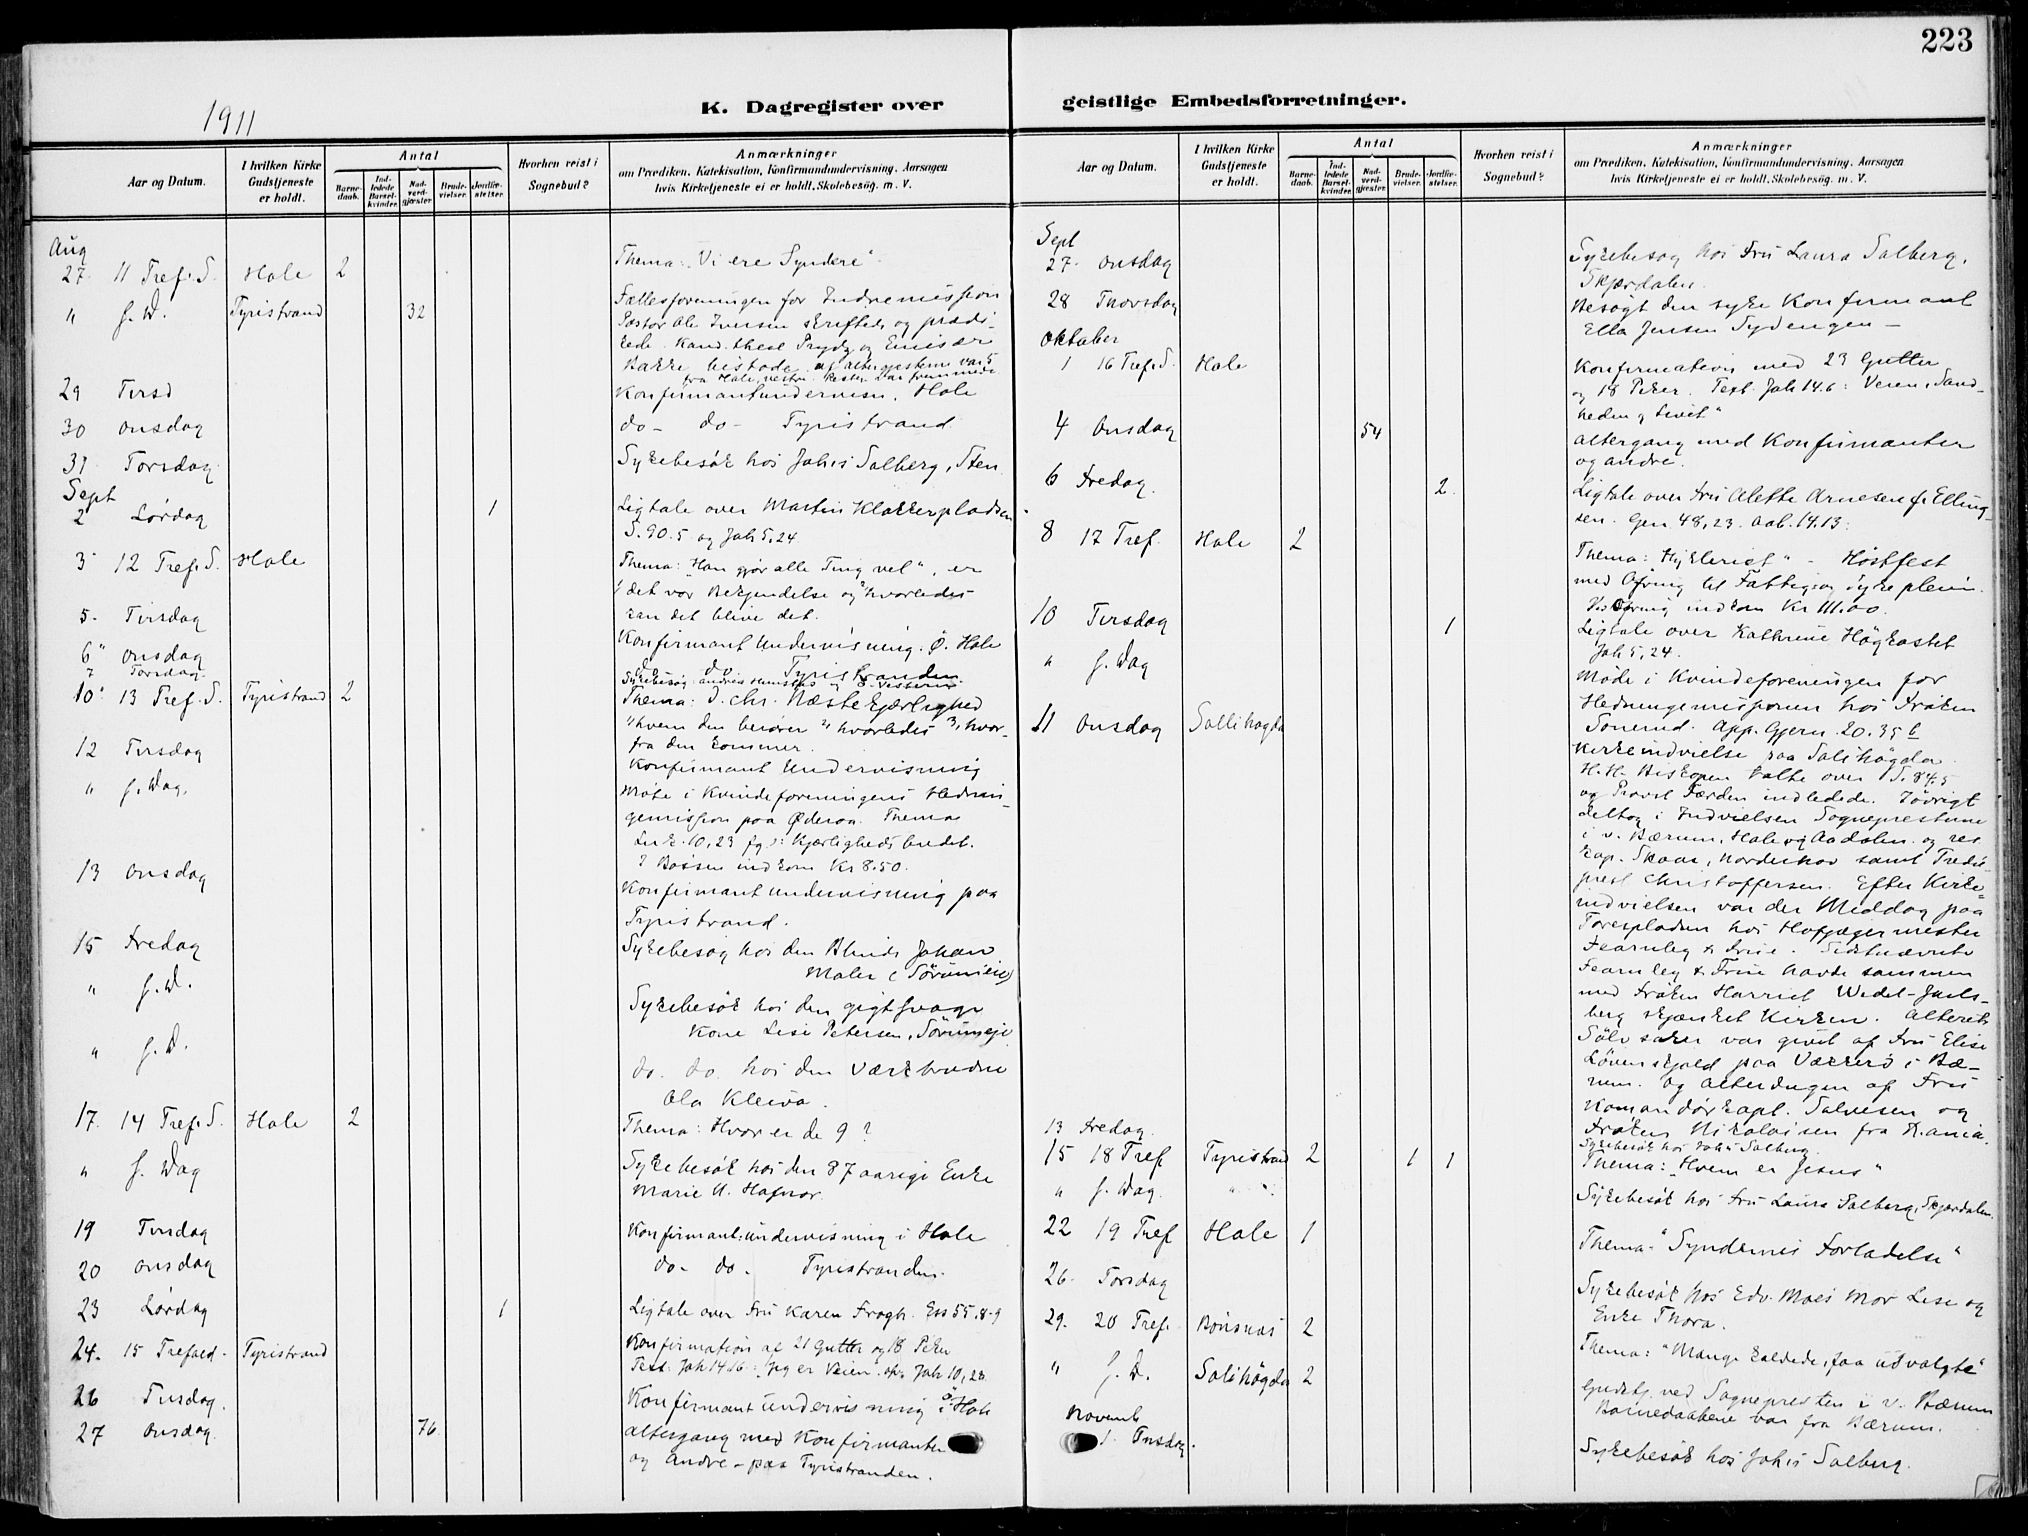 223
1911
K. Dagregister over
geistlige Embedsforretninger.
Aar og Datum.
I hvilken Kirke Gudstjeneste er holdt.
Antal
Barnedaab.
Indledede Barselkvinder.
Nadverdgjæster.
Brudevielser.
Jordfæstelser.
Hvorhen reist i Sognebud?
Anmærkninger
om Prædiken, Katekisation, Konfirmandundervisning, Aarsagen
hvis Kirketjeneste ei er holdt, Skolebesøg. m. V.
Aug
27. 11 Tref. S. Hole 2 Thema: "Vi ere Syndere"
" s. D. Tyristrand 32 Fællesforeningen for Indremission
Pastor Ole Iversen skriftede og prædi-
kede. Kand. theol Prydz og Emissær
Bakke bistode. af altergjesterne var 5
fra Hole, vestre. Resten var fremmede
29 Tirsd Konfirmantundervisn. Hole
30 Onsdag do - do - Tyristrand
31 Torsdag Sykebesøk hos Johs Solberg, Sten
Sept
2 Lørdag 1 Ligtale over Martin Klokkerpladsen
S. 90.5 og Joh 5,24
3 12 Tref. S. Hole Thema: "Han gjør alle Ting vel", er
1 det vor Bekjendelse og 2 hvorledes
kan det blive det.
5. Tirsdag Konfirmant Undervisning. Ø. Hole
6 Onsdag do do Tyristranden
7 Torsdag Sykebesøg
10. 13 Tref. S. Tyristrand 2 Thema: D. chr. Næstekjærlighed
1, hvem den berører 2, hvorledes 3, hvor-
fra den kommer.
12 Tirsdag Konfirmant Undervisning
" s. Dag. Møte i Kvindeforeningens Hednin-
gemission paa Øderaa. Thema
Luk. 10,23 fg: Kjærlighedsbudet.
I Bøssen indkom Kr 8.50.
13 Onsdag Konfirmantundervisning paa
Tyristrand.
15 Fredag Sykebesøg hos den Blinde Johan
Maler (Sørumeie)
" s. D. Sykebesøk hos den gigtsvage
Kone Lise Petersen, Sørumeje
" s. D. do. do. hos den værkbrudne
Ola Kleiva.
17. 14 Tref. S. Hole 2 Thema: Hvor er de 9?
" s. Dag Sykebesøk hos den 87 aarige Enke
Marie U. Hafnor.
19 Tirsdag Konfirmant-undervisning i Hole
20 Onsdag do - do - Tyristranden.
23 Lørdag 1 Ligtale over Fru Karen Frogh. Ess 55.8-9
24. 15 Trefold - Tyristrand Konfirmation af 21 Gutter og 18 Piker
Text. Joh 14.16: Jeg er Veien. Joh 10,28
26 Tirsdag. Konfirmant undervisning i Hole
27 Onsdag. 76 altergang med Konfirmanter
og Andre - paa Tyristranden.
Aar og Datum.
I hvilken Kirke Gudstjeneste er holdt.
Antal
Barnedaab.
Indledede Barselkvinder.
Nadverdgjæster.
Brudevielser.
Jordfæstelser.
Hvorhen reist i Sognebud?
Anmærkninger
om Prædiken, Katekisation, Konfirmandundervisning, Aarsagen
hvis Kirketjeneste ei er holdt, Skolebesøg. m. V.
Sept
27. Onsdag Sykebesøg hos Fru Laura Solberg,
Skjærdalen.
28 Thorsdag Besøgt den syke Konfirmant
Ella Jensen Sydengen -
Oktober
1 16 Tref. S. Hole Konfirmation med 23 Gutter
og 18 Piker. Text. Joh 14.6: Veien, Sand-
heden og Livet"
4 Onsdag 54 altergang med Konfirmanter
og andre.
6 Fredag. 2. Ligtale over Fru Alette Arnesen f. Elling-
sen. Gen 48,23. Aab. 14.13.
8 17 Tref. Hole 2 Thema: Hykleriet" - Høstfest
med Ofring til Fattig og Sykepleien.
Ved Ofring indkom Kr
10 Tirsdag 1 Ligtale over Kathrine Høgkastet
Joh 5,24.
" s. Dag Møde i Kvindeforeningen for
Hedningemissionen hos Frøken
Tonerud. App. Gjern. 20.35 b
11 Onsdag Sollihøgda Kirkeindvielse paa Solihøgda.
H. H. Biskopen talte over S. 84.5
og Provst Færden indledede. Iøvrigt
deltog i Indvielsen Sogneprestene
i v. Bærum, Hole og Aadalen. og res
kap. Skaar, Norderhov samt Fredsprest
Christoffersen. Efter Kirke-
indvielsen var der Middag paa
Toresplassen hos Hofjægermester
Fearnley & Frue. Sidstnævnte
Fearnley & Frue havde sammen
med Frøken Harriet Wedel-Jarls-
berg skjænket Kirken. Alterets
Sølv saker var givet af Fru Elise
Løvenskjold paa Vækkerø i Bæ-
rum. og alterdugen af Fru
Komandørkapt. Salvesen og
Frøken Nikolaisen fra K.ania.
13 Fredag. Sykebesøk hos Johs Solberg.
15 18 Tref Tyristrand 2 1 1 Thema: "Hvem er Jesus"
" s. Dag. " " Sykebesøk hos Fru Laura Solberg, Skjærdalen.
22 19 Tref Hole 1 Thema: "Syndernes Forladelse"
26. Torsdag Sykebesøk hos Edv. Moes Mor Lise og
Enke Thora.
29. 20 Tref. Bønsnæs 2 Thema: "Mange kaldede, faa udvalgte"
" s. D. Solihøgda 2 Gudstj. ved Sognepresten i v. Bærum
Barnedaabene var fra Bærum.
Novemb
1. Onsdag. Sykebesøk hos Johs Solberg.